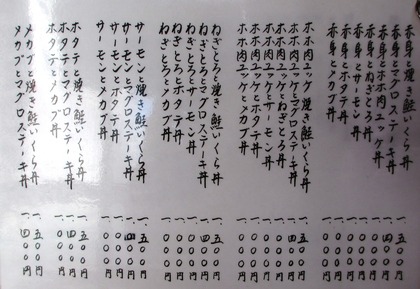 赤身と焼き鮭いくら丼 一、五〇〇円
赤身とマグロステーキ丼 一、四〇〇円
赤身とホホ肉ユッケ丼 一、〇〇〇円
赤身とねぎとろ丼 一、〇〇〇円
赤身とサーモン丼 一、〇〇〇円
赤身とホタテ丼 一、〇〇〇円
赤身とメカブ丼 一、〇〇〇円
ホホ肉ユッケと焼き鮭いくら丼 一、五〇〇円
ホホ肉ユッケとマグロステーキ丼 一、四〇〇円
ホホ肉ユッケとねぎとろ丼 一、〇〇〇円
ホホ肉ユッケとサーモン丼 一、〇〇〇円
ホホ肉ユッケとホタテ丼 一、〇〇〇円
ホホ肉ユッケとメカブ丼 一、〇〇〇円
ねぎとろと焼き鮭いくら丼 一、五〇〇円
ねぎとろとマグロステーキ丼 一、四〇〇円
ねぎとろとサーモン丼 一、〇〇〇円
ねぎとろとホタテ丼 一、〇〇〇円
ねぎとろとメカブ丼 一、〇〇〇円
サーモンと焼き鮭いくら丼 一、五〇〇円
サーモンとマグロステーキ丼 一、四〇〇円
サーモンとホタテ丼 一、〇〇〇円
サーモンとメカブ丼 一、〇〇〇円
ホタテと焼き鮭いくら丼 一、五〇〇円
ホタテとマグロステーキ丼 一、四〇〇円
ホタテとメカブ丼 一、〇〇〇円
メカブと焼き鮭いくら丼 一、五〇〇円
メカブとマグロステーキ丼 一、四〇〇円